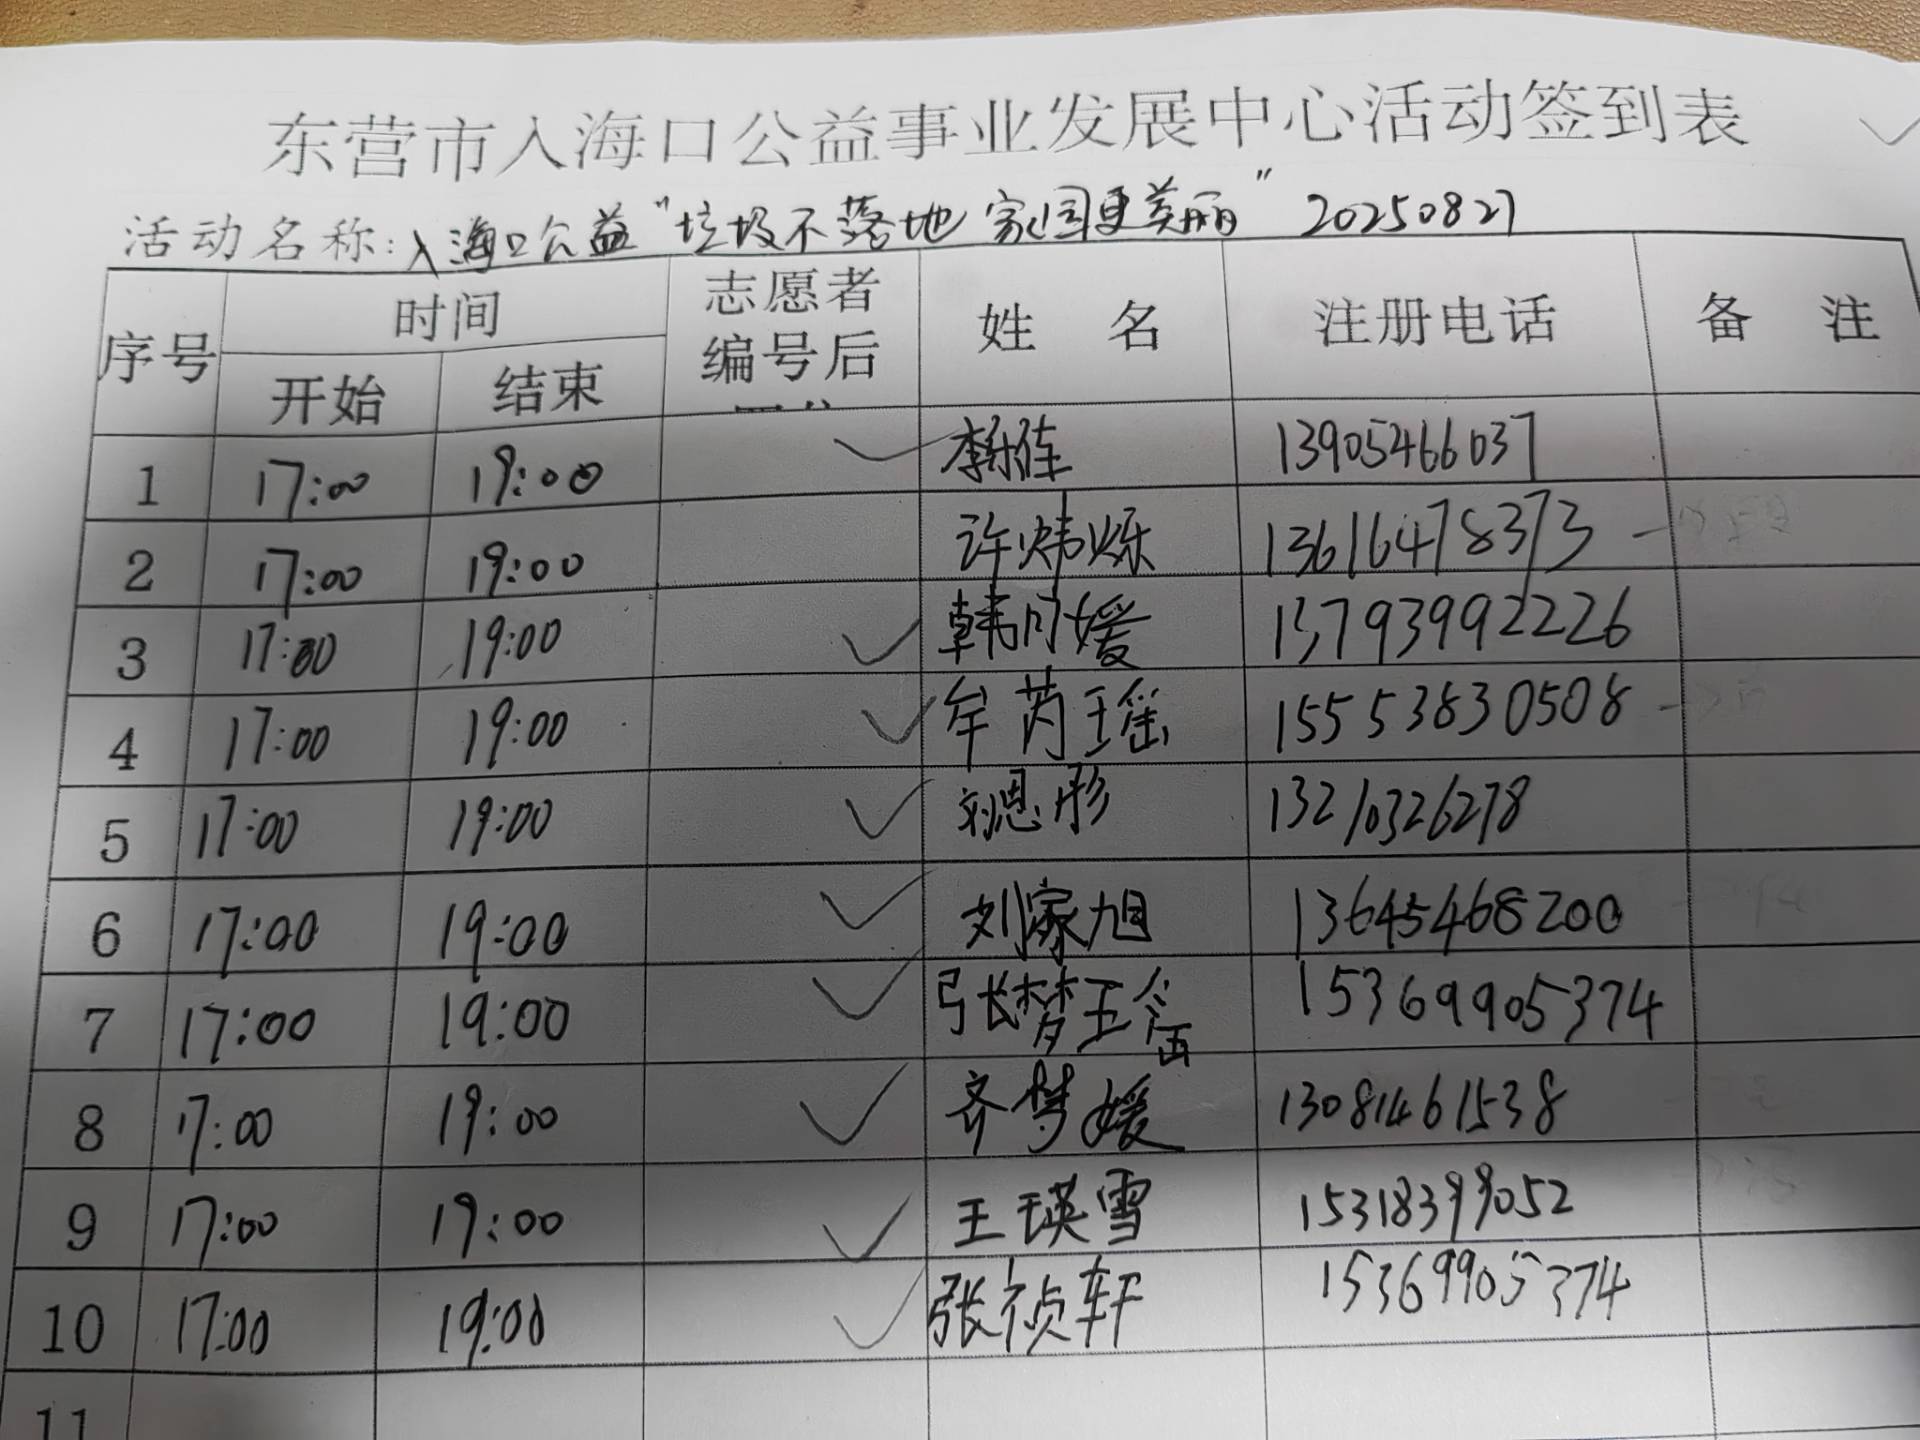 东营市入海口公益事业发展中心活动签到表
活动名称:入海口公益"垃圾不落地 家园更美丽" 20250827
序号 时间 志愿者编号后 姓 名 注册电话 备 注
开始 结束
1 17:00 19:00 李倩 13905466037
2 17:00 19:00 许炜烁 13616478373
3 17:00 19:00 韩月媛 13793992226
4 17:00 19:00 牟芮瑶 15553830508
5 17:00 19:00 刘恩彤 13210326278
6 17:00 19:00 刘家旭 13645468200
7 17:00 19:00 张梦 15369905374
8 17:00 19:00 齐梦媛 13081461538
9 17:00 19:00 王瑛雪 15318399052
10 17:00 19:00 张祯轩 15369905374
11